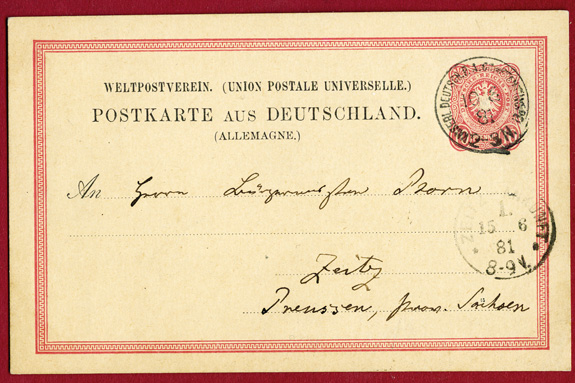 WELTPOSTVEREIN. (UNION POSTALE UNIVERSELLE.)
POSTKARTE AUS DEUTSCHLAND.
(ALLEMAGNE.)
An Herrn Bürgermeister Born
Zeitz
Preussen, prov. Sachsen
1.
15 6
81
8-9 V.